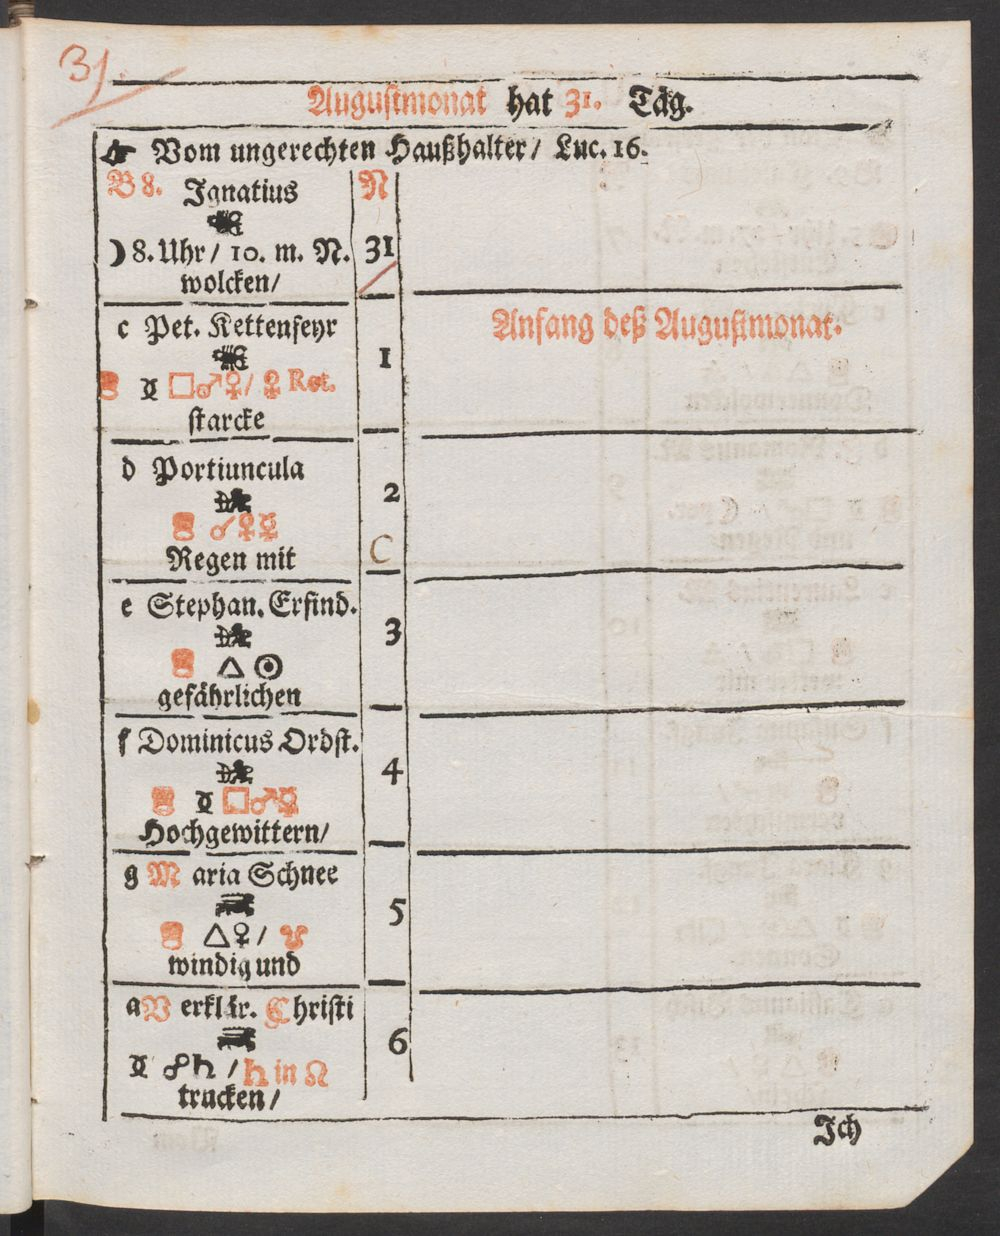 31.
Augustmonat hat 31. Täg.
Vom ungerechten Haußhalter / Luc. 16.
B 8. Ignatius N
☽ 8. Uhr / 10. m. N. 31
wolcken /
c Pet. Kettenfeyr
Anfang deß Augustmonat.
1
☿ □♂♀ / ☿ Ret.
starcke
d Portiuncula
2
☌♀☿
Regen mit C
e Stephan. Erfind.
3
△ ☉
gefährlichen
f Dominicus Ordst.
4
□♂☿
Hochgewittern /
g Maria Schnee
5
△♀ / ♉
windig und
a Verklär. Christi
6
☍♄ / ♄ in ♌
trucken /
Ich